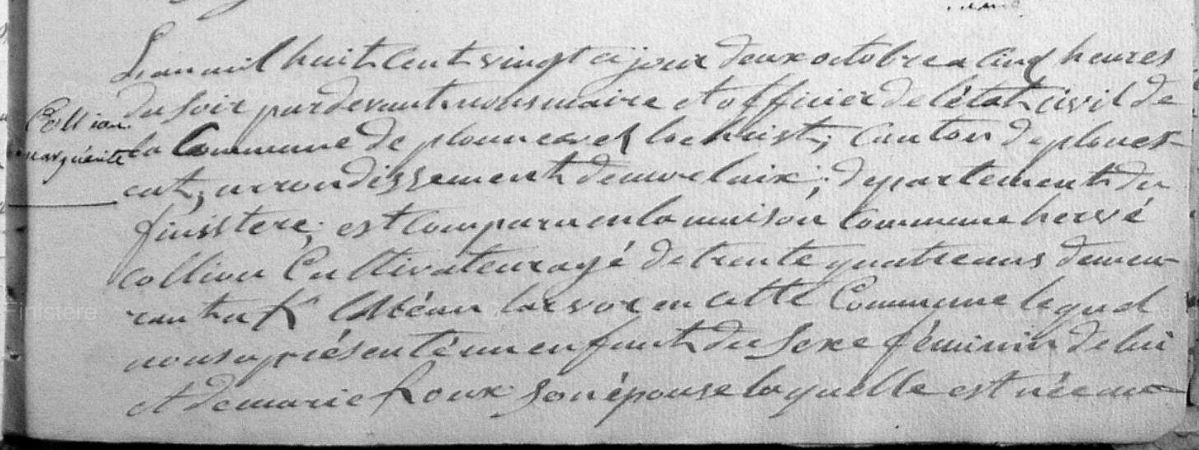 L'an mil huit cent vingt ce jour deux octobre a cinq heures
du soir pardevant nous maire et officier de l'état civil de
Collion
marguérite
la Commune de plounevez lochrist; canton de ploues-
cat, arrondissement de morlaix; departement du
finistere; est comparu en la maison Commune hervé
collion Cultivateur agé de trente quatre ans demeu-
rant au en cette Commune lequel
nous a présenté un enfant du Sexe féminin de lui
et de marie Roux son épouse laquelle est née au